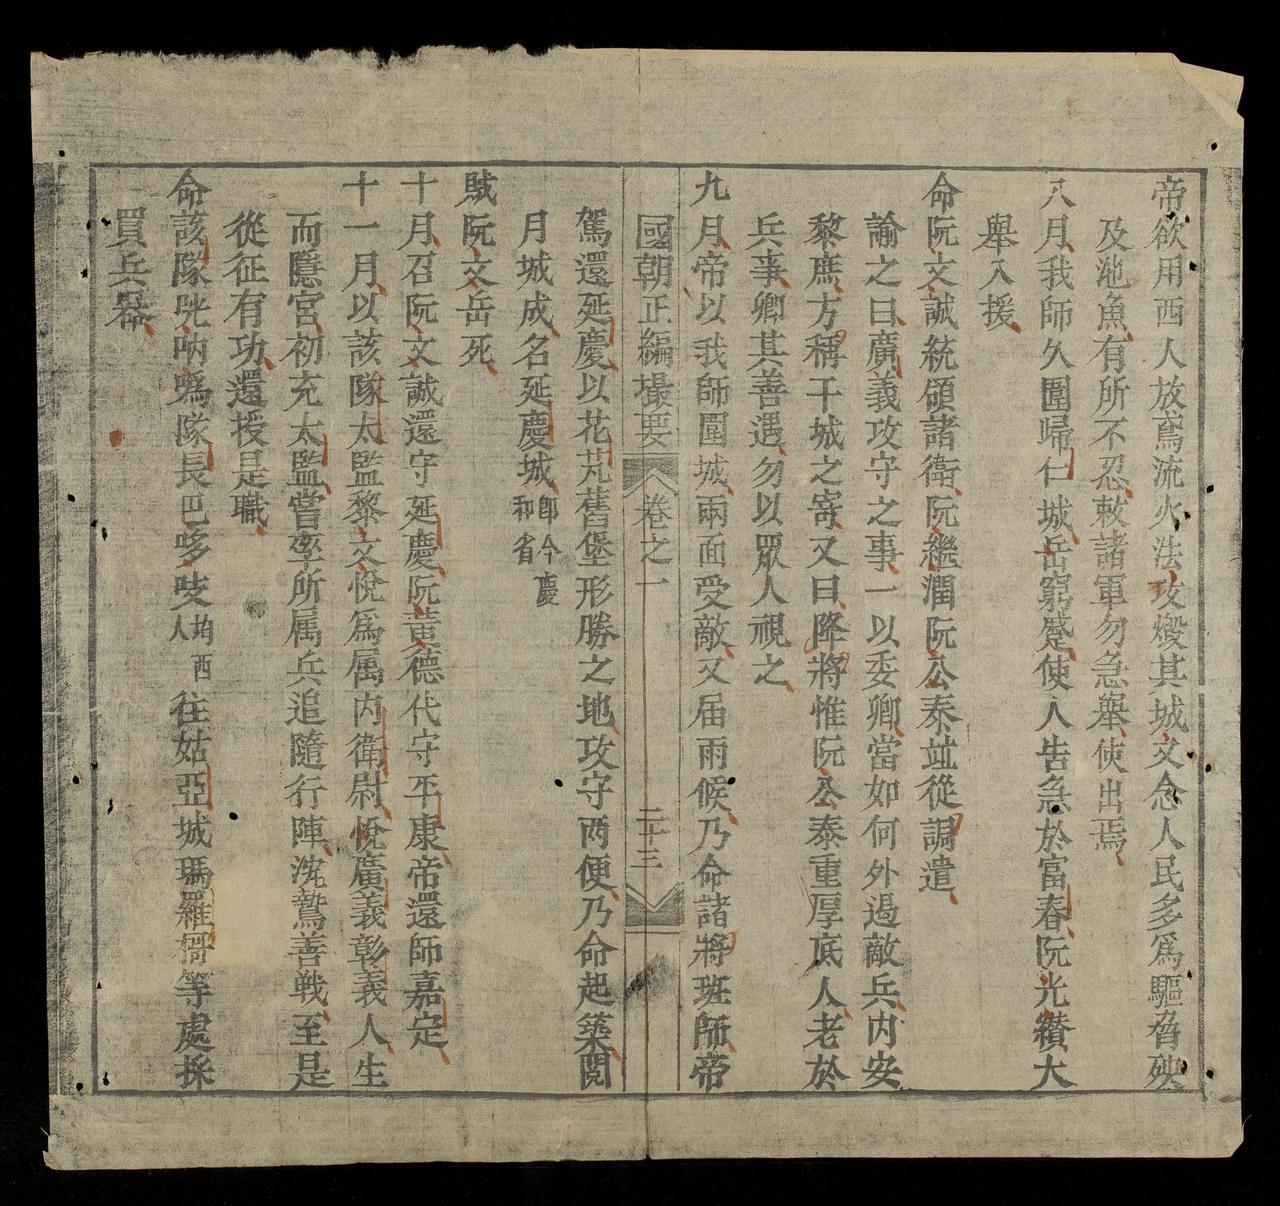 帝欲用西人放鳶流火法攻燬其城文念人民多爲驅脅殃
及池魚有所不忍敕諸軍勿急舉使出焉
八月我師久圍歸仁城岳窮蹙使人告急於富春阮光纘大
舉入援
命阮文誠統領諸衛阮繼潤阮公泰並從調遣
諭之曰廣義攻守之事一以委卿當如何外遏敵兵內安
黎庶方稱干城之寄又曰降將惟阮公泰重厚底人老於
兵事卿其善遇勿以眾人視之
九月帝以我師圍城兩面受敵又届雨候乃命諸將班師帝
國朝正編撮要 卷之一 二十三
駕還延慶以花芃舊堡形勝之地攻守两便乃命起築閱
月城成名延慶城即今慶和省
賊阮文岳死
十月召阮文誠還守延慶阮黃德代守平康帝還師嘉定
十一月以該隊太監黎文悅爲属內衛尉悅廣義彰義人生
而隱宮初充太監嘗率所属兵追隨行陣沈鷙善戰至是
從征有功還授是職
命該隊咣呐嗎隊長巴哆吱均西人往姑亞城瑪羅𠸗等處採
買兵器